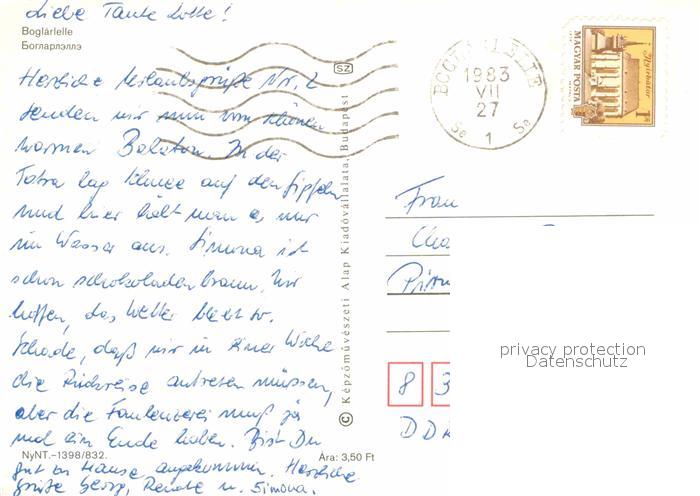 Liebe Tante Lotte!
Boglárlelle
Богларлэллэ
Herzliche Urlaubsgrüße Nr. 2
senden wir nun vom schönen
warmen Balaton. In der
Tatra lag Schnee auf den Gipfeln
und hier hält man es nur
im Wasser aus. Simona ist
schon schokoladenbraun. Wir
hoffen, das Wetter bleibt so.
Schade, daß wir in einer Woche
die Rückreise antreten müssen,
aber die Faulenzerei muß ja
mal ein Ende haben. Bist Du
NyNT.-1398/832.
Ára: 3,50 Ft
gut zu Hause angekommen. Herzliche
Grüße Georg, Renate u. Simona.
SZ
© Képzőművészeti Alap Kiadóvállalata, Budapest
BOGLÁRLELLE
1983
VII
27
1
Nyírbátor
1 Ft
MAGYAR POSTA
Frau
Cha
8 3
DD
privacy protection
Datenschutz